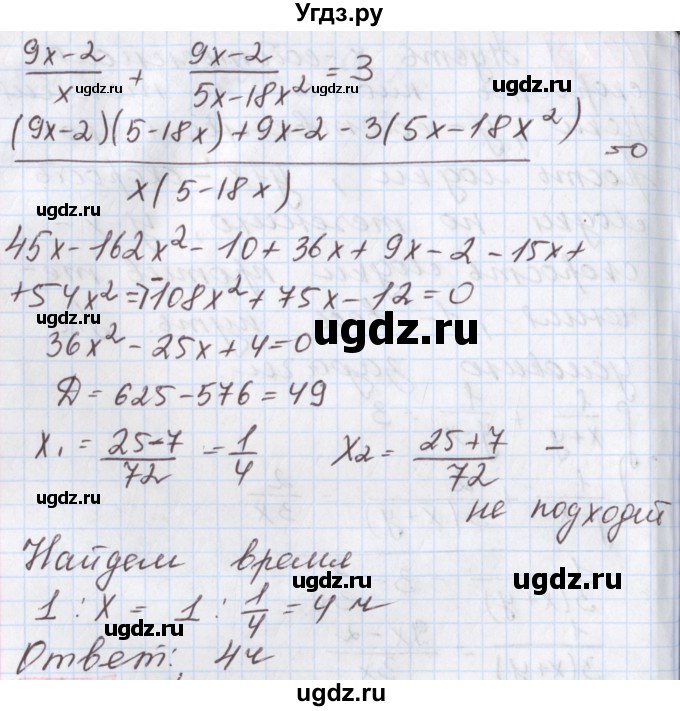 Угдз.ру
(9x-2)/x + (9x-2)/(5x-18x²) = 3
ugdz.ru ugdz.ru
((9x-2)(5-18x)+9x-2-3(5x-18x²))/(x(5-18x)) = 0
ugdz.ru
45x-162x²-10+36x+9x-2-15x+
+54x²=>-108x²+75x-12=0
ugdz.ru
36x²-25x+4=0
Д=625-576=49
x₁=(25-7)/72=1/4 x₂=(25+7)/72 -
ugdz.ru
не подходит
Найдем время
ugdz.ru ugdz.ru
1:x=1:1/4=4ч
ugdz.ru
Ответ: 4ч
ugdz.ru
ugdz.ru